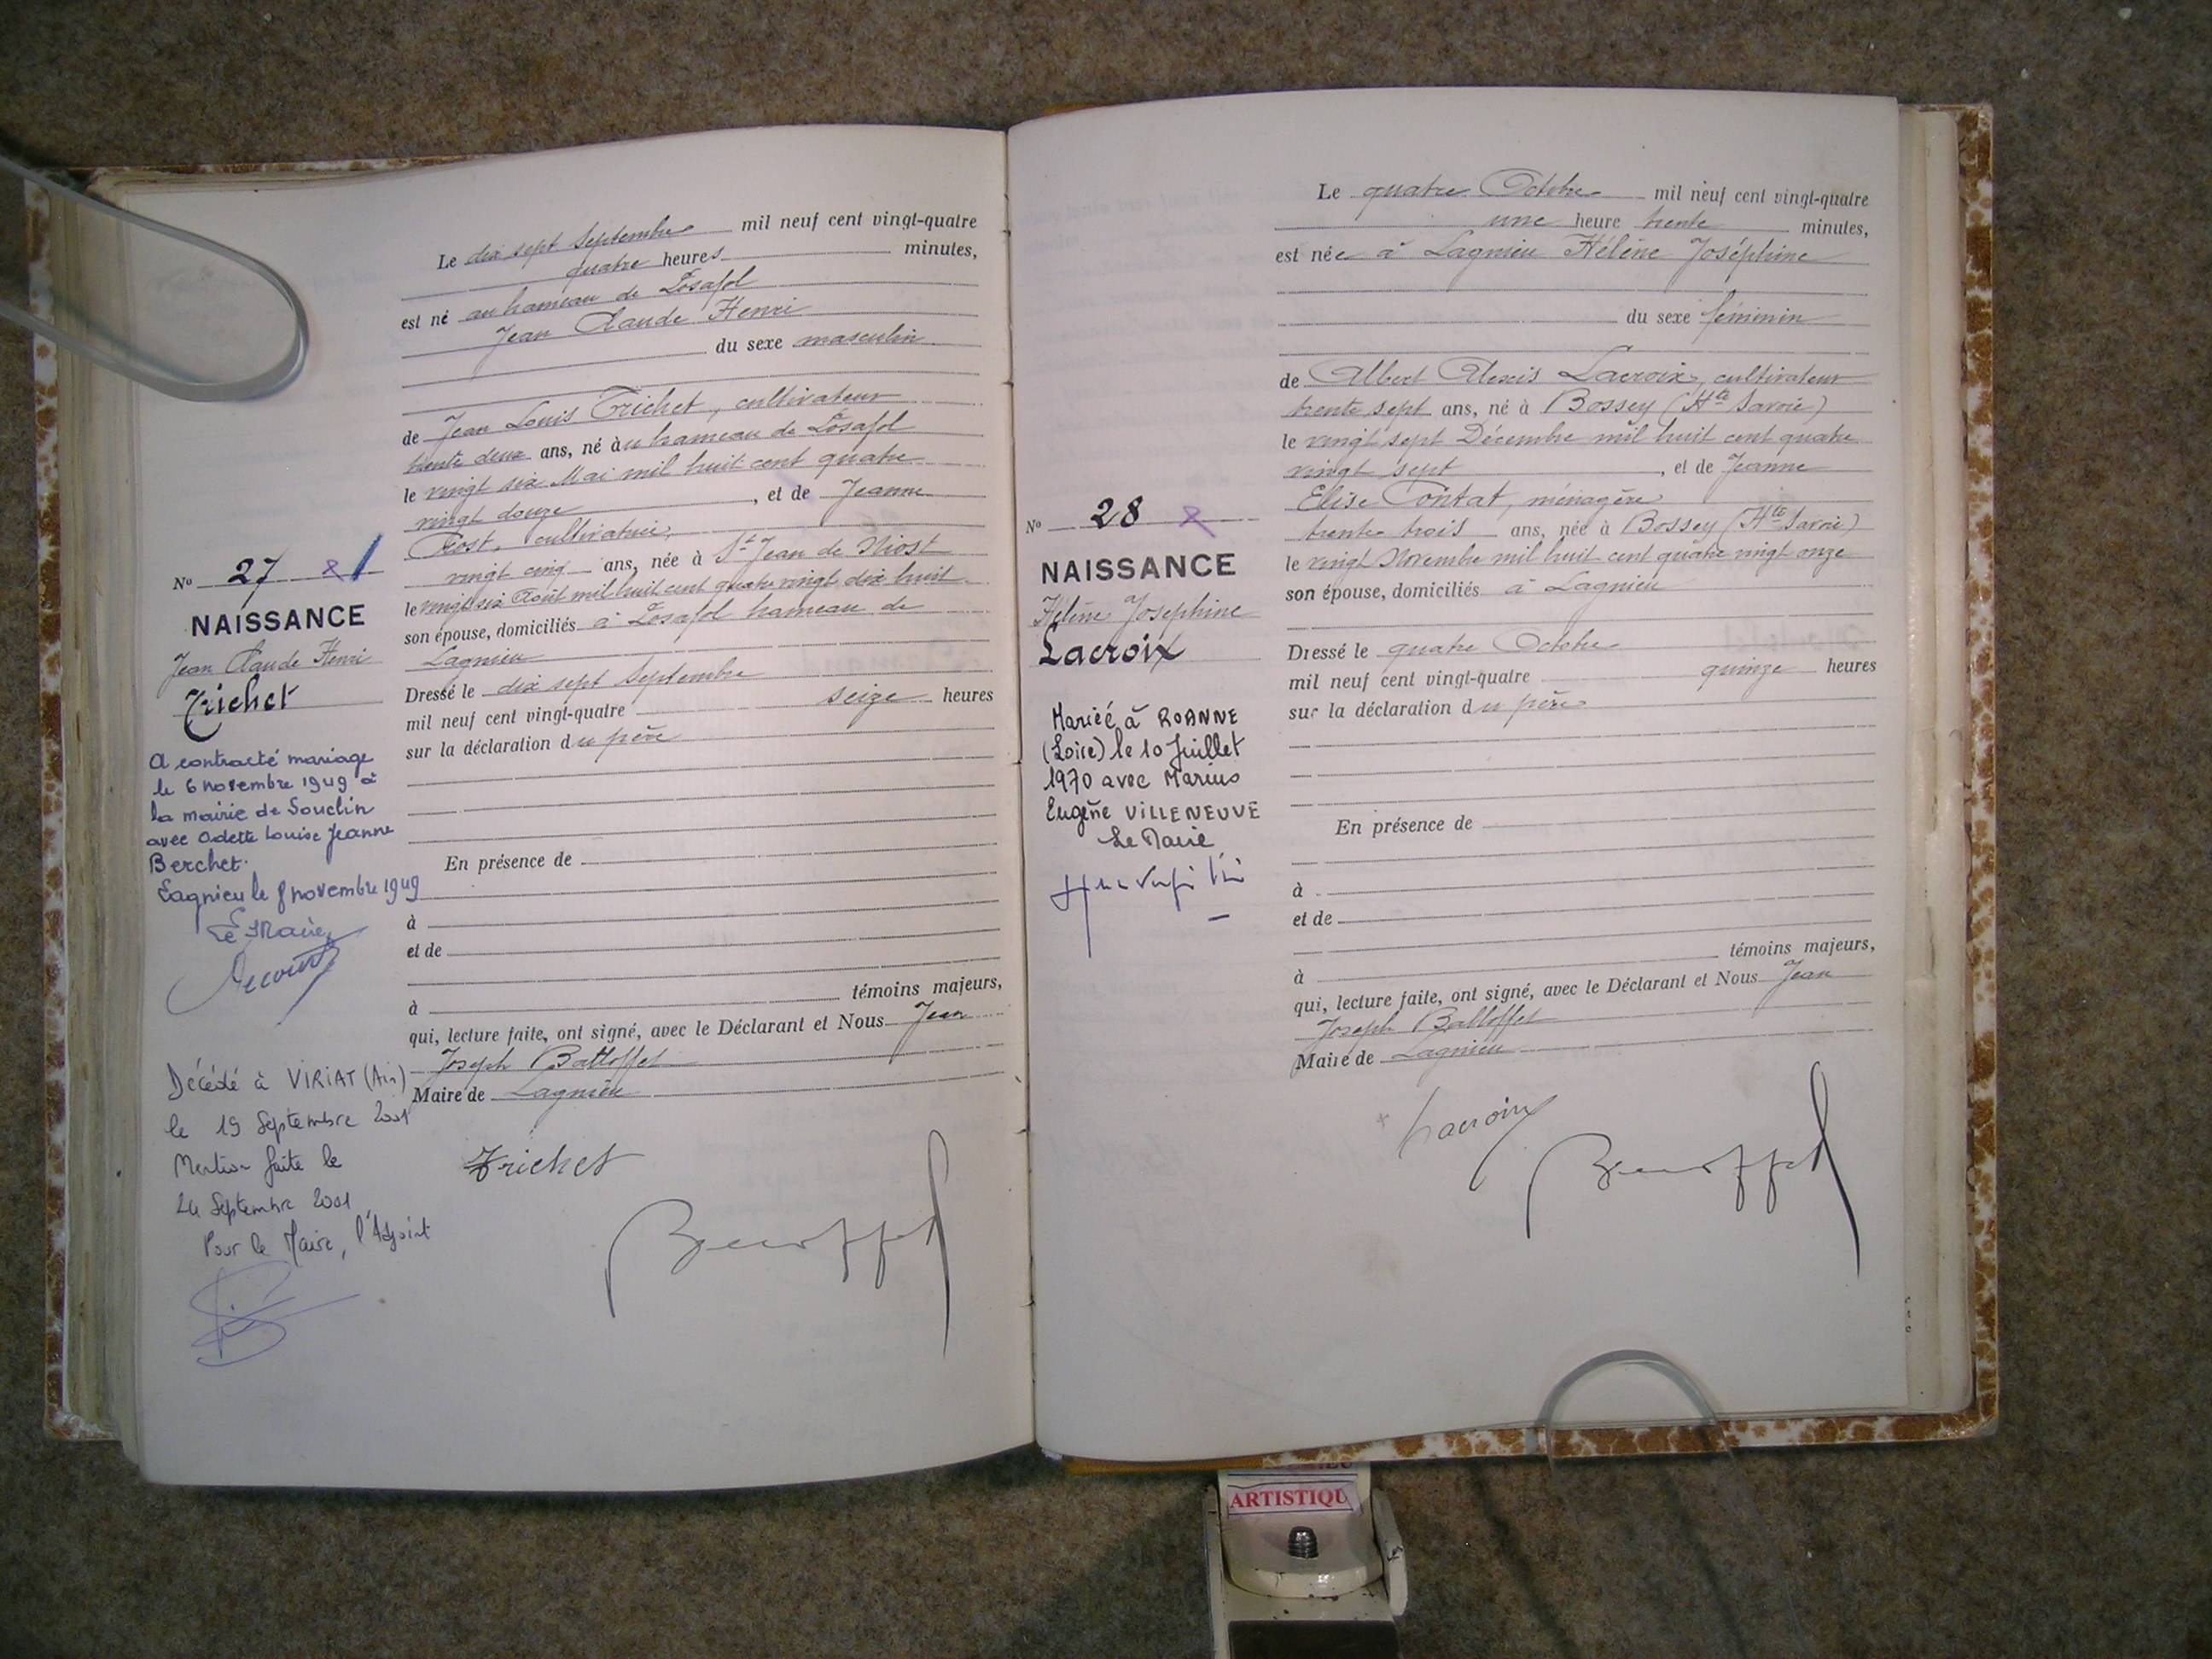 Le dix sept Septembre mil neuf cent vingt-quatre
quatre heures minutes,
est né au hameau de Posafol
Jean Claude Henri
du sexe masculin
de Jean Louis Trichet, cultivateur
trente deux ans, né àu hameau de Posafol
le vingt six Mai mil huit cent quatre
vingt douze, et de Jeanne
cultivatrice,
vingt cinq ans, née à St Jean de Niost
le vingt six Août mil huit cent quatre vingt dix huit
son épouse, domiciliés à Posafol hameau de
Lagnieu
Dressé le dix sept Septembre
mil neuf cent vingt-quatre seize heures
sur la déclaration du père
En présence de
à
et de
à témoins majeurs,
qui, lecture faite, ont signé, avec le Déclarant et Nous Jean
Joseph Balloffet
Maire de Lagnieu
Trichet
Balloffet
No 27
NAISSANCE
Jean Claude Henri
Trichet
A contracté mariage
le 6 novembre 1949 à
la mairie de Souclin
avec Odette Louise Jeanne
Berchet.
Lagnieu le 8 novembre 1949
Le Maire,
Décédé à VIRIAT (Ain)
le 19 Septembre 2001
Mention faite le
24 Septembre 2001
Pour le Maire, l'Adjoint
Le quatre Octobre mil neuf cent vingt-quatre
une heure trente minutes,
est née à Lagnieu Hélène Joséphine
du sexe féminin
de Albert Alexis Lacroix, cultivateur
trente sept ans, né à Bossey (Hte Savoie)
le vingt sept Décembre mil huit cent quatre
vingt sept, et de Jeanne
Elise Contat, ménagère
trente trois ans, née à Bossey (Hte Savoie)
le vingt Novembre mil huit cent quatre vingt onze
son épouse, domiciliés à Lagnieu
Dressé le quatre Octobre
mil neuf cent vingt-quatre quinze heures
sur la déclaration du père
En présence de
à
et de
à témoins majeurs,
qui, lecture faite, ont signé, avec le Déclarant et Nous Jean
Joseph Balloffet
Maire de Lagnieu
Lacroix
Balloffet
No 28
NAISSANCE
Hélène Joséphine
Lacroix
Mariée à ROANNE
(Loire) le 10 Juillet
1970 avec Marius
Eugène VILLENEUVE
Le Maire
ARTISTIQU